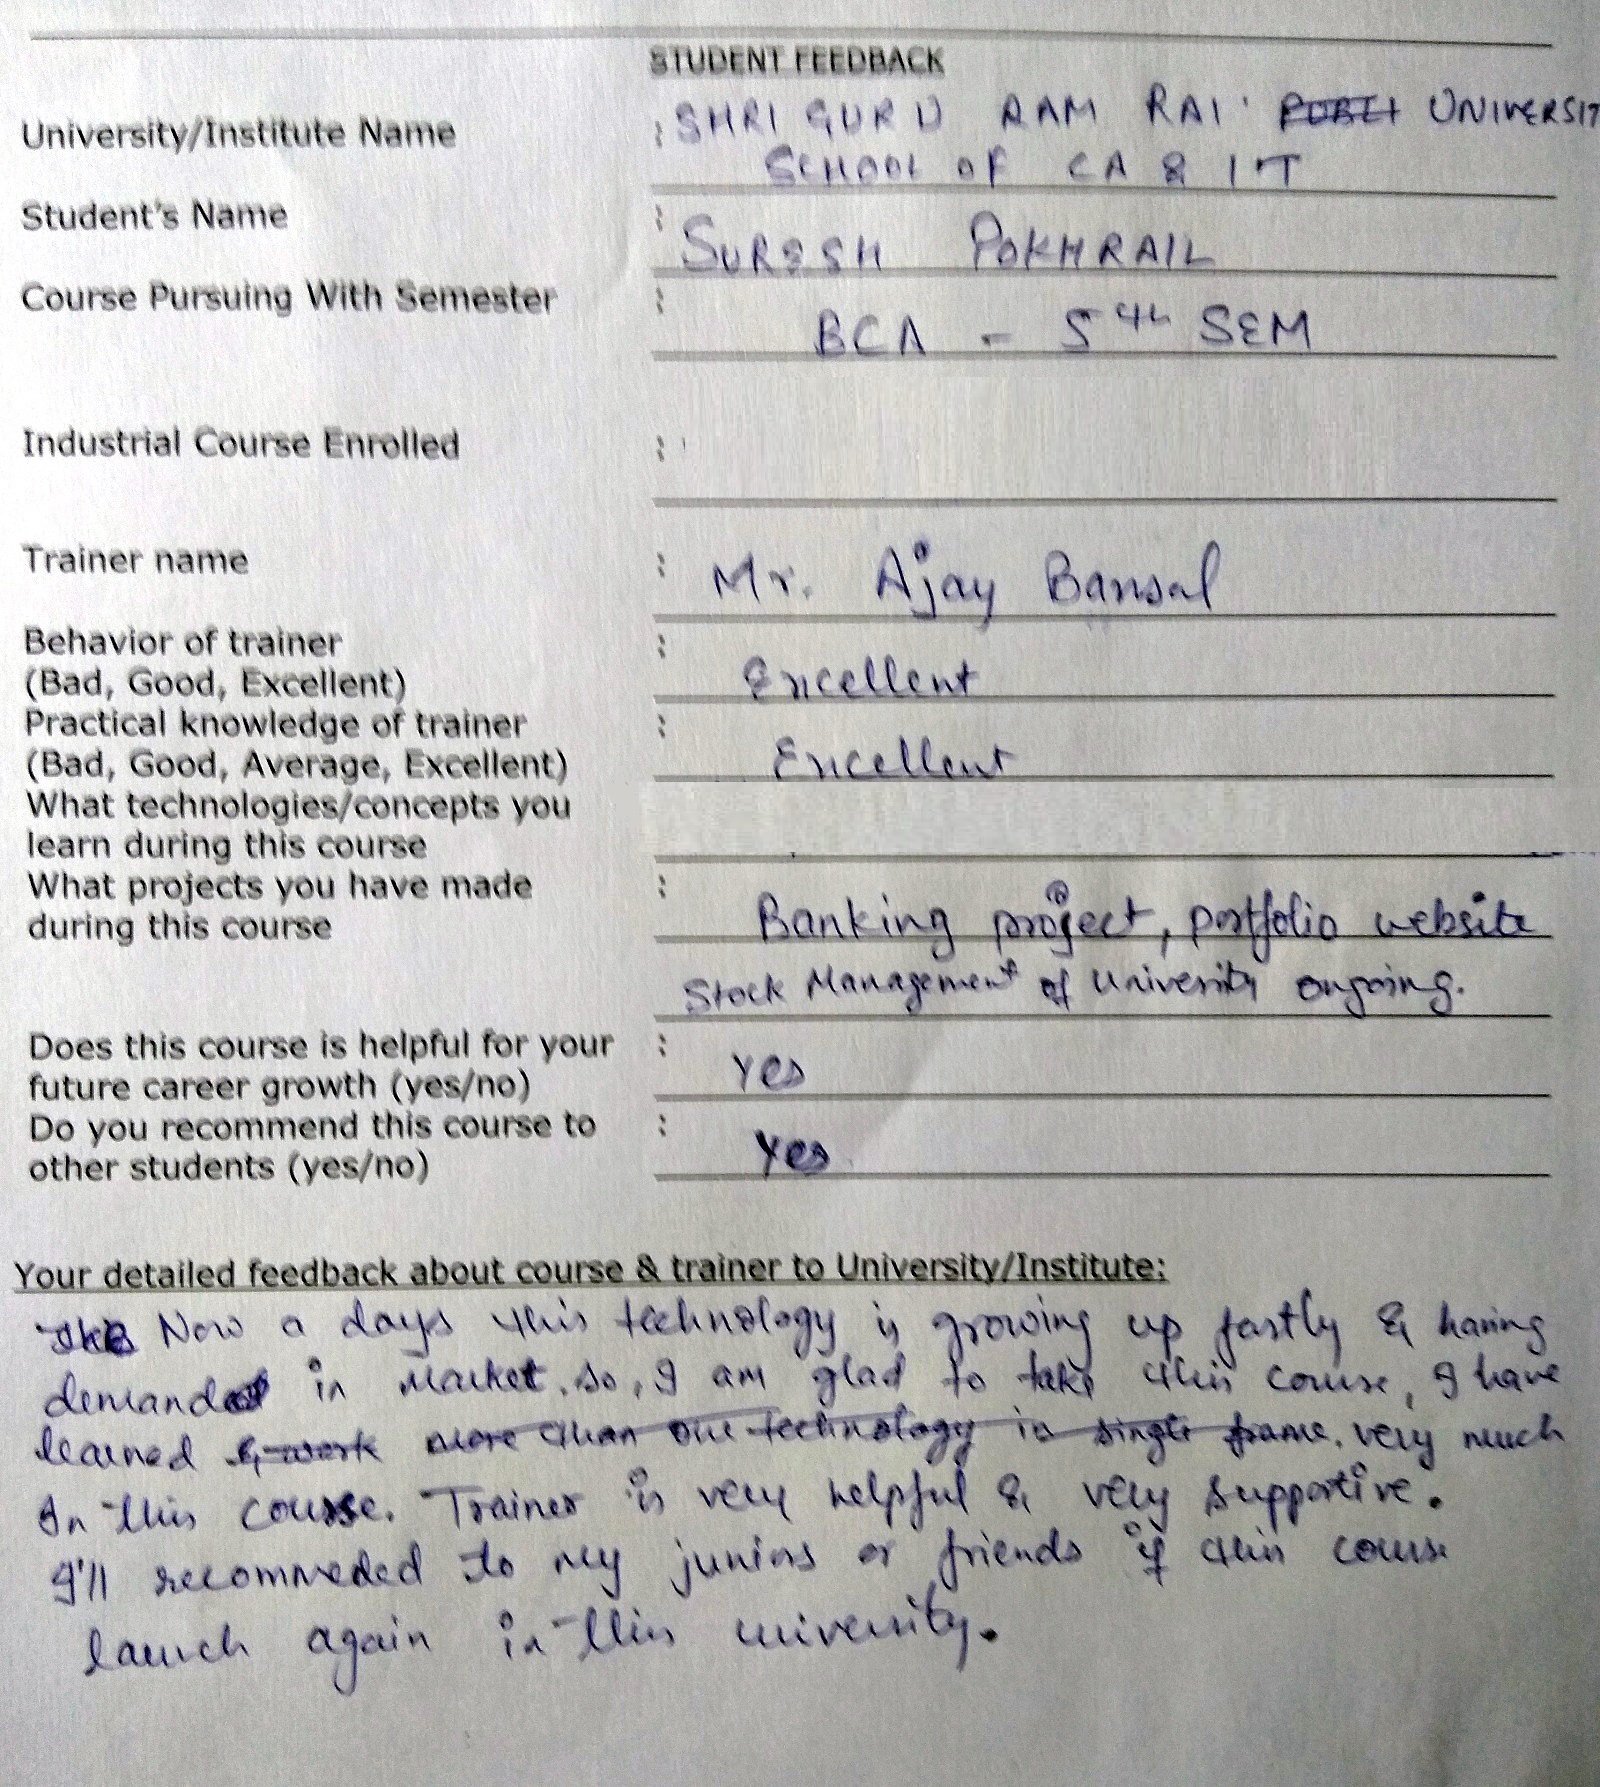 STUDENT FEEDBACK
University/Institute Name : SHRI GURU RAM RAI UNIVERSIT
SCHOOL OF CA & IT
Student's Name : SURESH POKHRAIL
Course Pursuing With Semester : BCA - 5th SEM
Industrial Course Enrolled :
Trainer name : Mr. Ajay Bansal
Behavior of trainer :
(Bad, Good, Excellent) Excellent
Practical knowledge of trainer :
(Bad, Good, Average, Excellent) Excellent
What technologies/concepts you
learn during this course
What projects you have made :
during this course Banking project, portfolio website
Stock Management of University ongoing.
Does this course is helpful for your :
future career growth (yes/no) Yes
Do you recommend this course to :
other students (yes/no) Yes
Your detailed feedback about course & trainer to University/Institute:
Now a days this technology is growing up fastly & having
demand in Market. so, I am glad to take this course, I have
learned & work more than one technology in single frame. very much
In this course. Trainer is very helpful & very supportive.
I'll recommneded to my juniors or friends if this course
launch again in this university.